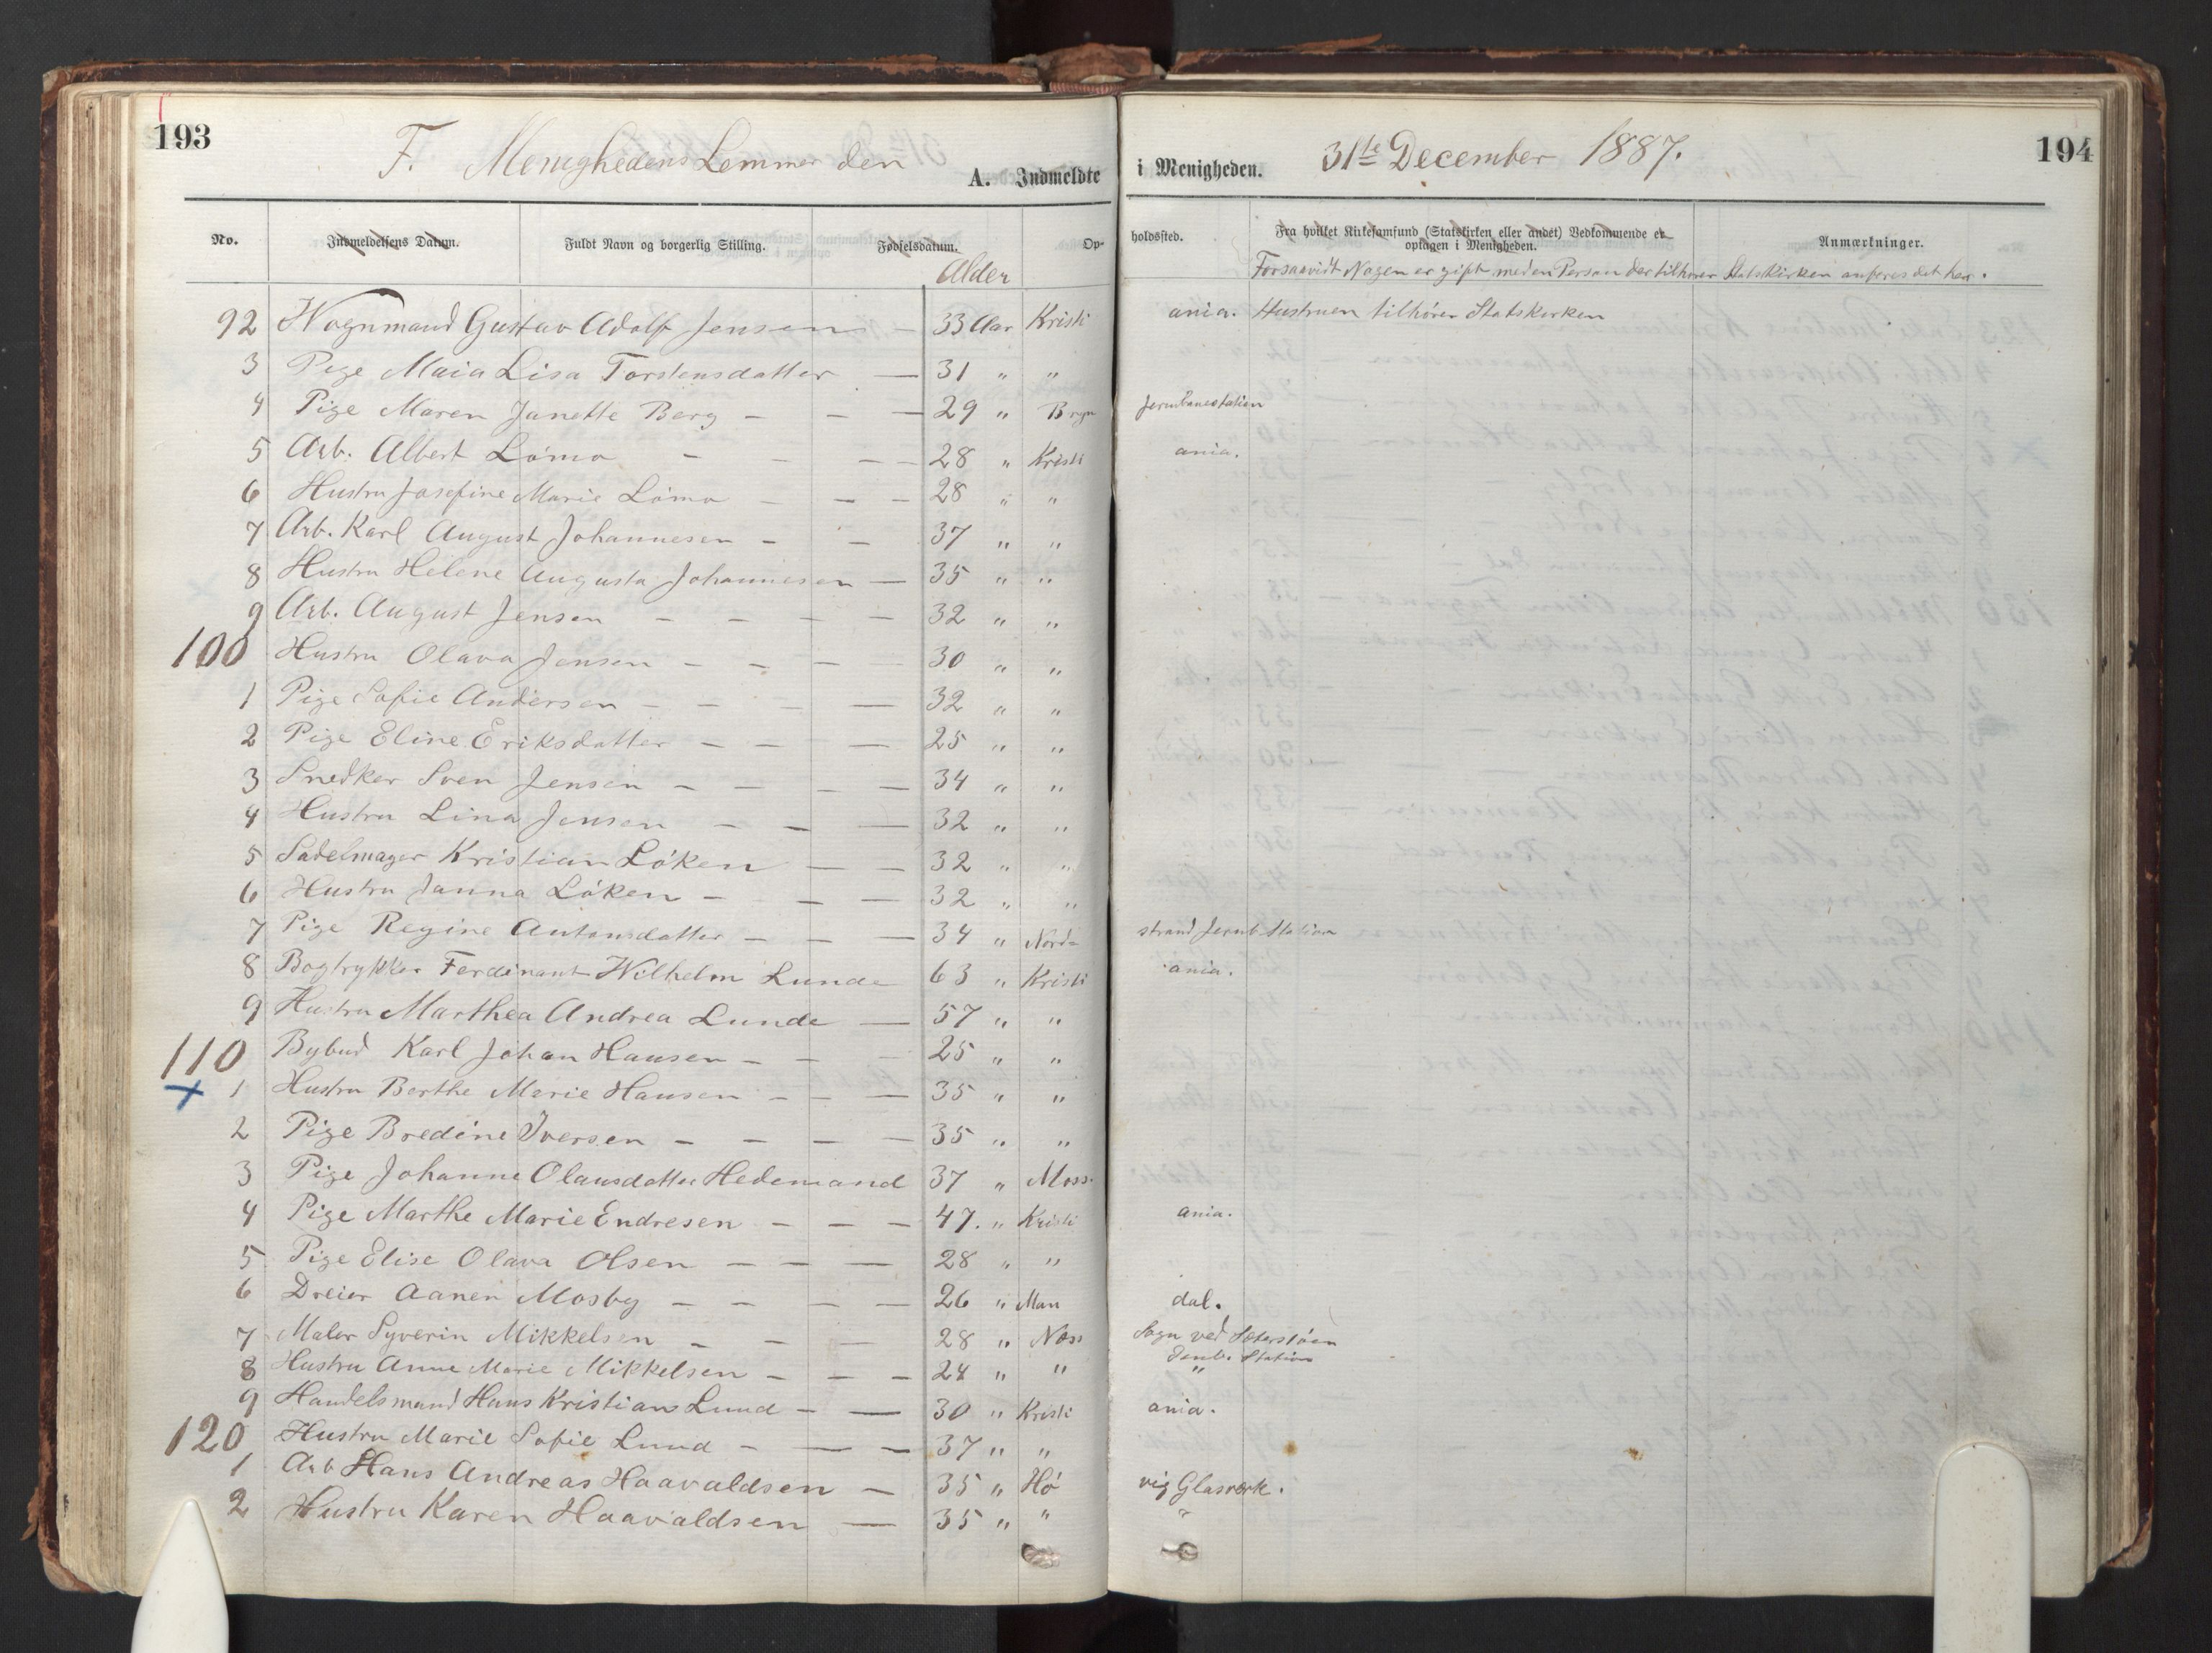 193
F. Menighedens Lemmer den 31te December 1887.
194
A. Indmeldte i Menigheden.
No. Indmeldelsens Datum. Fuldt Navn og borgerlig Stilling. Fødselsdatum. Op- holdssted. Fra hvilket Kirkesamfund (Statskirken eller andet) Vedkommende er Anmærkninger.
optagen i Menigheden.
Alder Forsaavidt Nogen er gift med en Person der tilhører Statskirken anføres det her.
92 Vognmand Gustav Adolf Jensen — 33 Aar Kristi ania. Hustruen tilhører Statskirken
3 Pige Maia Lisa Torstensdatter — 31 " "
4 Pige Maren Janette Berg — — — 29 " Bryn Jernbanestation
5 Arb. Albert Lömo — — — 28 " Kristi ania.
6 Hustru Josefine Marie Lömo — — — 28 " "
7 Arb. Karl August Johannesen — — 37 " "
8 Hustru Helene Augusta Johannesen — 35 " "
9 Arb. August Jensen — — — — 32 " "
100 Hustru Olava Jensen — — — 30 " "
1 Pige Sofie Andersen — — — — 32 " "
2 Pige Eline Eriksdatter — — — 25 " "
3 Snedker Sven Jensen — — — — 34 " "
4 Hustru Lina Jensen — — — 32 " "
5 Sadelmager Kristian Löken — — 32 " "
6 Hustru Janna Löken — — — 32 " "
7 Pige Regine Antonsdatter — — — 34 " Nord- strand Jernb. Station
8 Bogtrykker Ferdinant Wilhelm Lunde 63 " Kristi ania.
9 Hustru Marthea Andrea Lunde — 57 " "
110 Bybud Karl Johan Hansen — — — 25 " "
x 1 Hustru Berthe Marie Hansen — — — 35 " "
2 Pige Bredine Iversen — — — — 35 " "
3 Pige Johanne Olausdatter Hedemand 37 " Moss.
4 Pige Marthe Marie Endresen — — — 47. " Kristi ania.
5 Pige Elise Olava Olsen — — — 28 " "
6 Dreier Aanen Mosby — — — — 26 " Man dal.
7 Maler Syverin Mikkelsen — — — 28 " Næs Sogn ved Sæterstöen
Jenb. Station
8 Hustru Anne Marie Mikkelsen — — — 24 " " "
9 Handelsmand Hans Kristians Lund — — 30 " Kristi ania.
120 Hustru Marie Sofie Lund — — — 37 " "
1 Arb Hans Andreas Haavaldsen — 35 " Hö vig Glasverk.
2 Hustru Karen Haavaldsen — 35 " " "